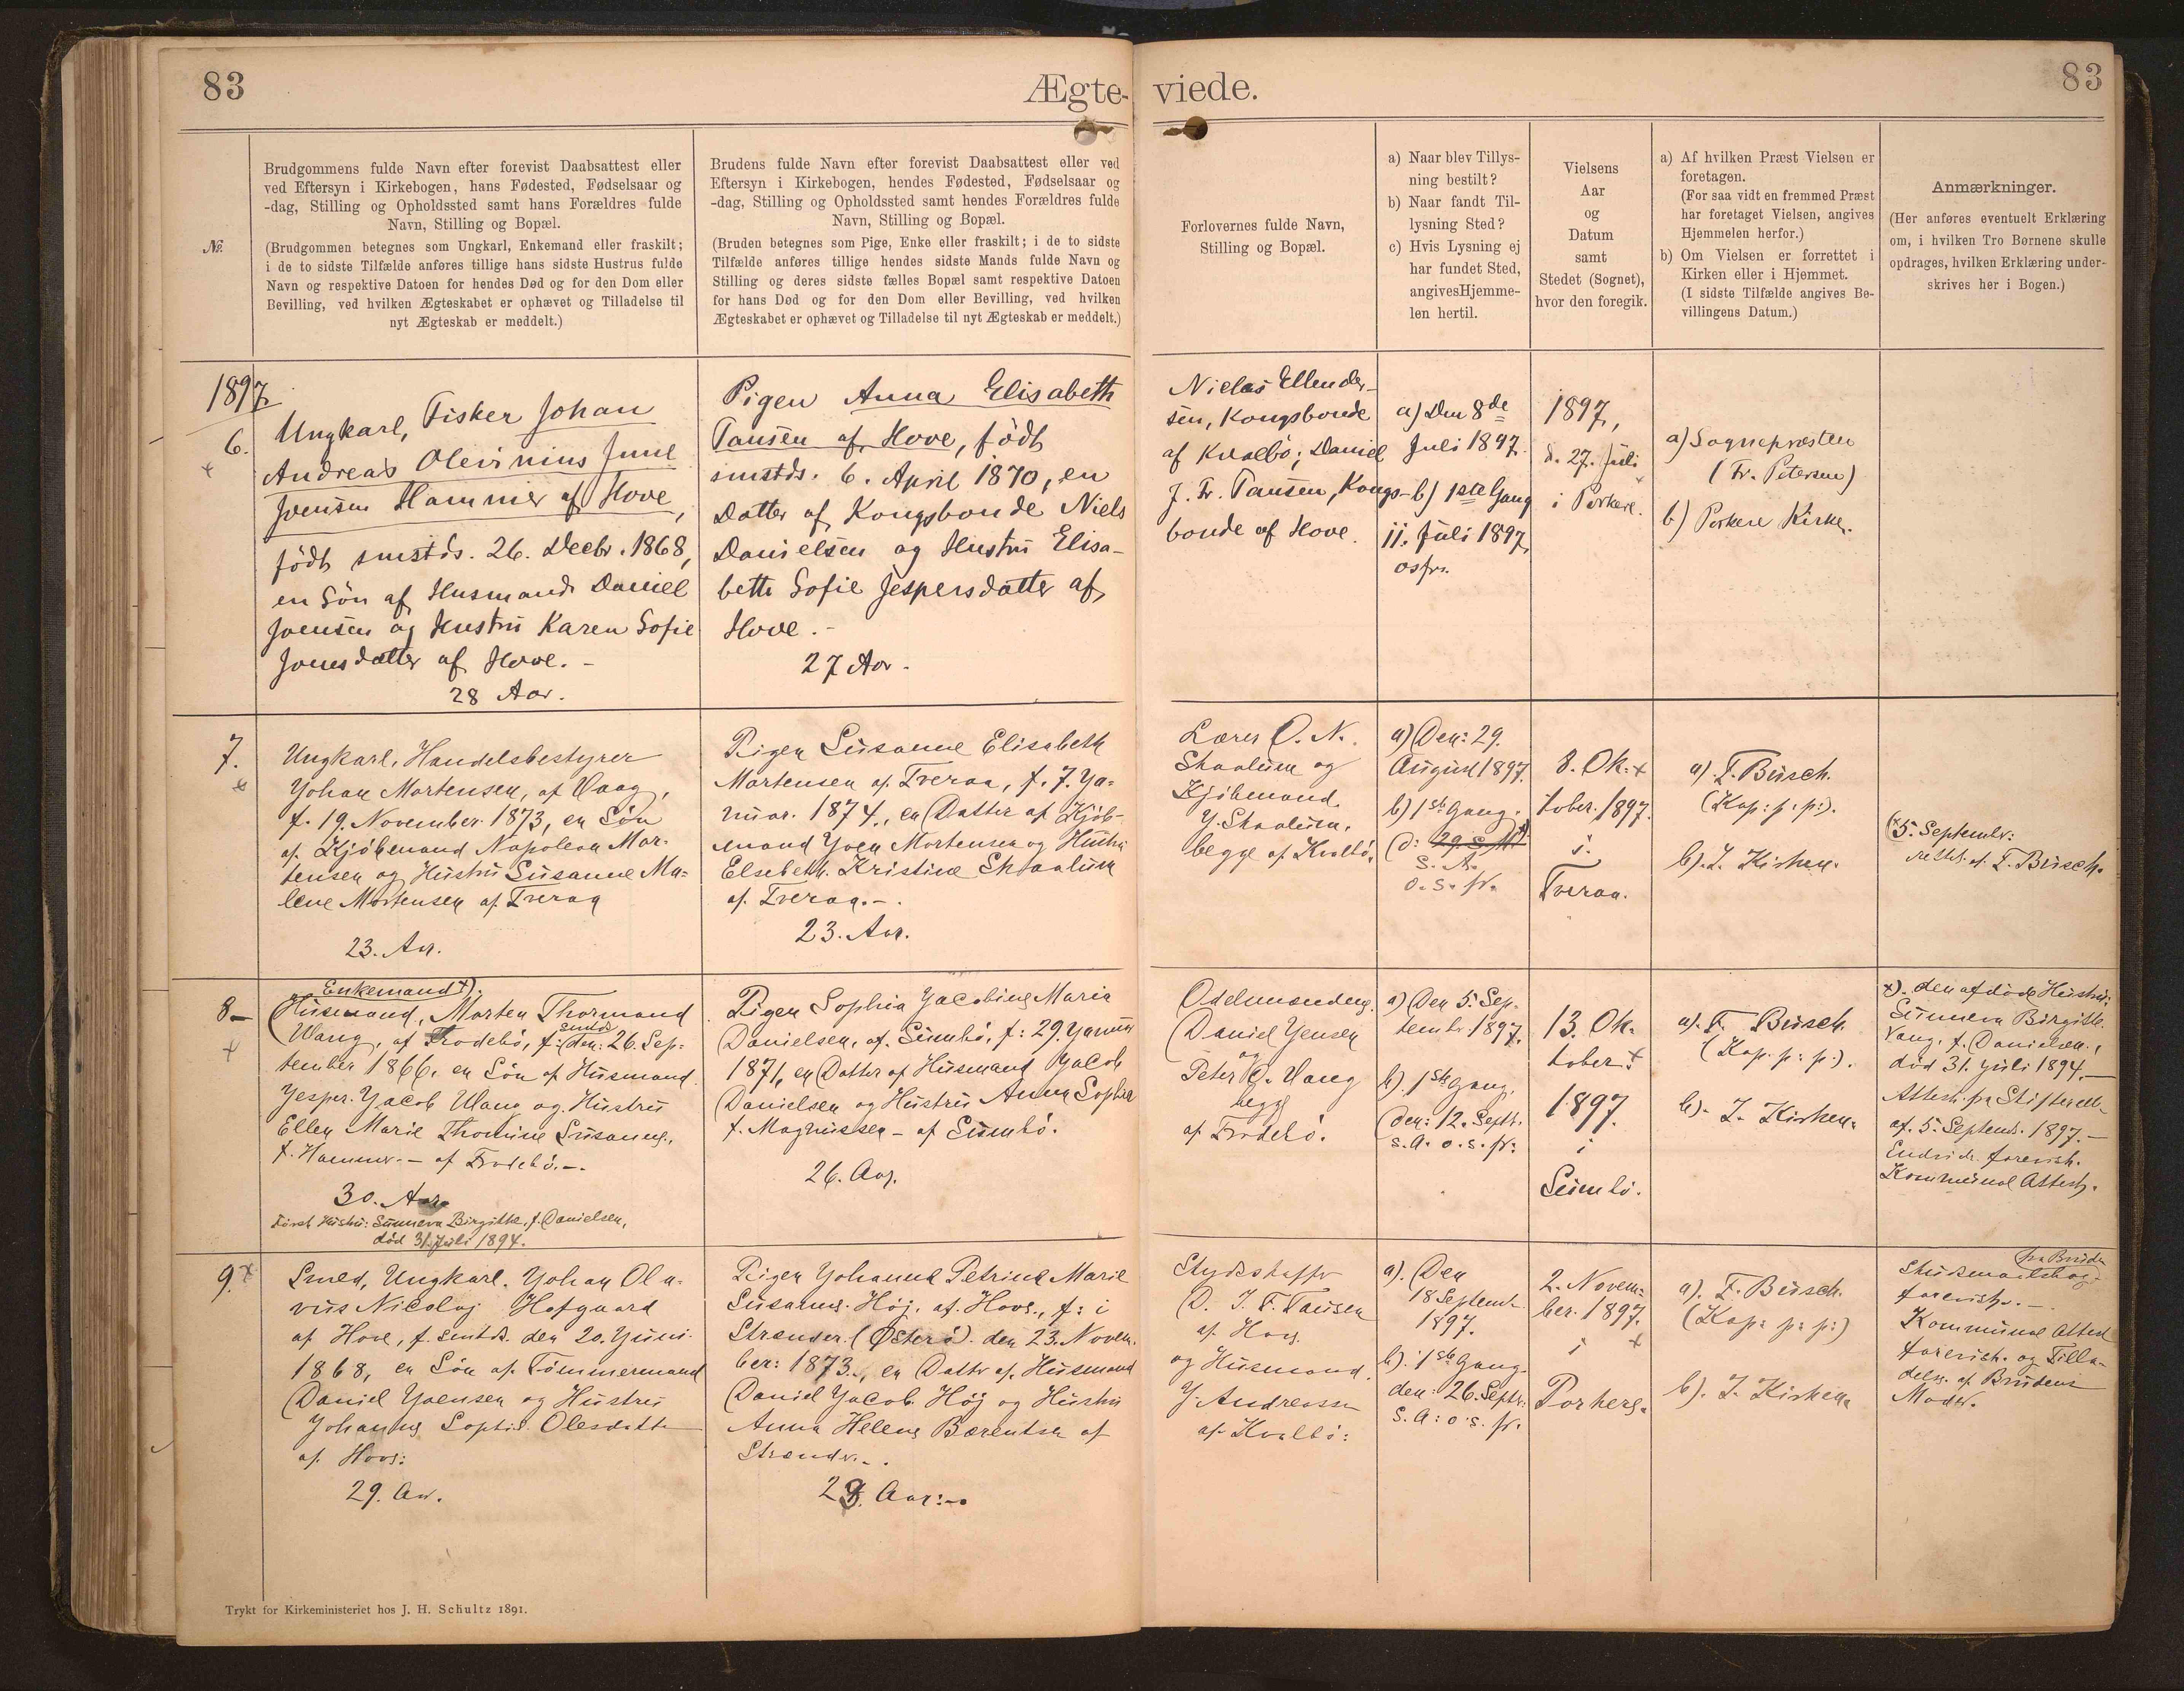 83
Ægte-
viede.
83
№.
Brudgommens fulde Navn efter forevist Daabsattest eller
ved Eftersyn i Kirkebogen, hans Fødested, Fødselsaar og
-dag, Stilling og Opholdssted samt hans Forældres fulde
Navn, Stilling og Bopæl.
(Brudgommen betegnes som Ungkarl, Enkemand eller fraskilt;
i de to sidste Tilfælde anføres tillige hans sidste Hustrus fulde
Navn og respektive Datoen for hendes Død og for den Dom eller
Bevilling, ved hvilken Ægteskabet er ophævet og Tilladelse til
nyt Ægteskab er meddelt.)
Brudens fulde Navn efter forevist Daabsattest eller ved
Eftersyn i Kirkebogen, hendes Fødested, Fødselsaar og
-dag, Stilling og Opholdssted samt hendes Forældres fulde
Navn, Stilling og Bopæl.
(Bruden betegnes som Pige, Enke eller fraskilt; i de to sidste
Tilfælde anføres tillige hendes sidste Mands fulde Navn og
Stilling og deres sidste fælles Bopæl samt respektive Datoen
for hans Død og for den Dom eller Bevilling, ved hvilken
Ægteskabet er ophævet og Tilladelse til nyt Ægteskab er meddelt.)
Forlovernes fulde Navn,
Stilling og Bopæl.
a) Naar blev Tillys-
ning bestilt?
b) Naar fandt Til-
lysning Sted?
c) Hvis Lysning ej
har fundet Sted,
angives Hjemme-
len hertil.
Vielsens
Aar
og
Datum
samt
Stedet (Sognet),
hvor den foregik.
a) Af hvilken Præst Vielsen er
foretagen.
(For saa vidt en fremmed Præst
har foretaget Vielsen, angives
Hjemmelen herfor.)
b) Om Vielsen er forrettet i
Kirken eller i Hjemmet.
(I sidste Tilfælde angives Be-
villingens Datum.)
Anmærkninger.
(Her anføres eventuelt Erklæring
om, i hvilken Tro Børnene skulle
opdrages, hvilken Erklæring under-
skrives her i Bogen.)
1897
6.
Ungkarl, Fisker Johan
Andreas Olevinius Juul
Joensen Hammer af Hove,
født smstds. 26. Decbr. 1868,
en Søn af Husmand Daniel
Joensen og Hustru Karen Sofie
Jonesdatter af Hove. -
28 Aar.
Pigen Anna Elisabeth
Tausen af Hove, født
smstds. 6. April 1870, en
Datter af Kongsbonde Niels
Danielsen og Hustru Elisa-
beth Sofie Jespersdatter af
Hove. -
27 Aar.
Niclas Ellender-
sen, Kongsbonde
af Kvalbø; Daniel
J. Fr. Tausen, Kongs-
bonde af Hove.
a) Den 8de
Juli 1897.
b) 1ste Gang
11. Juli 1897,
osfr.
1897,
d. 27. Juli
i Porkere.
a) Sognepræsten
(Fr. Petersen)
b) Porkere Kirke.
7.
Ungkarl, Handelsbestyrer
Johan Mortensen, af Vaag,
f. 19. November 1873, en Søn
af Kjøbmand Napoleon Mor-
tensen og Hustru Susanne Ma-
lene Mortensen af Tveraa
23. Aar.
Pigen Susanne Elisabeth
Mortensen af Tveraa, f. 7. Ja-
nuar. 1874, en Datter af Kjøb-
mand Joen Mortensen og Hustru
Elsebeth Kristine Skaalum
af Tveraa. -
23. Aar.
Lærer O. N.
Skaalum og
Kjøbmand
J. Skaalum,
begge af Kvalbø.
a) Den: 29.
August 1897.
b) 1ste Gang.
S. A.
o. s. fr.
8. Ok-
tober. 1897.
i.
Tveraa.
a) F. Busch.
(Kap: p: p:).
b). I. Kirken.
5. Septembr:
rettet af F. Busch.
8
Enkemand +).
Husmand, Morten Thormand
Vang, af Frodebø, f: smstds den: 26. Sep-
tember 1866, en Søn af Husmand
Jesper Jacob Vang og Hustru
Ellen Marie Thomine Susanne,
f. Hammer. - af Frodebø. -
30. Aar
Først Hustru: Sunneva Birgitte, f. Danielsen,
død 31. Juli 1894.
Pigen Sophia Jacobine Maria
Danielsen, af Sumbø, f: 29. Januar
1871, en Datter af Husmand Jacob
Danielsen og Hustru Anna Sophia
f. Magnussen - af Sumbø.
26. Aar.
Odelsmændene
Daniel Jensen
og
Peter O. Vang
begge
af Frodebø.
a) Den 5. Sep-
tembr 1897.
b). 1ste Gang,
den: 12. Septr.
S. A. o. s. fr:
13. Ok-
tober
1897.
i
Sumbø.
a). F. Busch.
(Kap. p: p:).
b). I. Kirken.
+). den afdøde Hustru:
Sunneva Birgitte
Vang, f. Danielsen,
død 31. Juli 1894. -
Attest fra Skifteretten
af. 5. Septemb. 1897. -
Endvidr. forevist.
Kommunal Attest.
9.
Smed, Ungkarl. Johan Ola-
vius Nicolaj Hofgaard
af Hove, f. smstds. den 20. Juni
1868, en Søn af Tømmermand
Daniel Joensen og Hustru
Johanne Sophie Olesdatter
af Hove:
29. Aar.
Pigen Johanne Petrine Marie
Susanne Høj, af. Hove., f: i
Strænder (Østerø). den 23. Novem-
ber: 1873., en Datter af. Husmand
Daniel Jacob Høj og Hustru
Anna Helene Bærentsen af
Strænder. -
Aar: -
D. J. F. Tausen
af Hove
og Husmand
J. Andreassen
af Kvalbø:
a). Den
18 Septemb.
1897.
b). 1ste Gang.
den: 26. Septr.
S. A: o. s. fr.
2. Novem-
ber. 1897.
i
Porkere.
a). F. Busch.
(Kap: p: p:)
b). I. Kirken.
fra Bruden
forevist. -
Kommunal Attest
forevist. og Tilla-
delse af Brudens
Moder.
Trykt for Kirkeministeriet hos J. H. Schultz 1891.